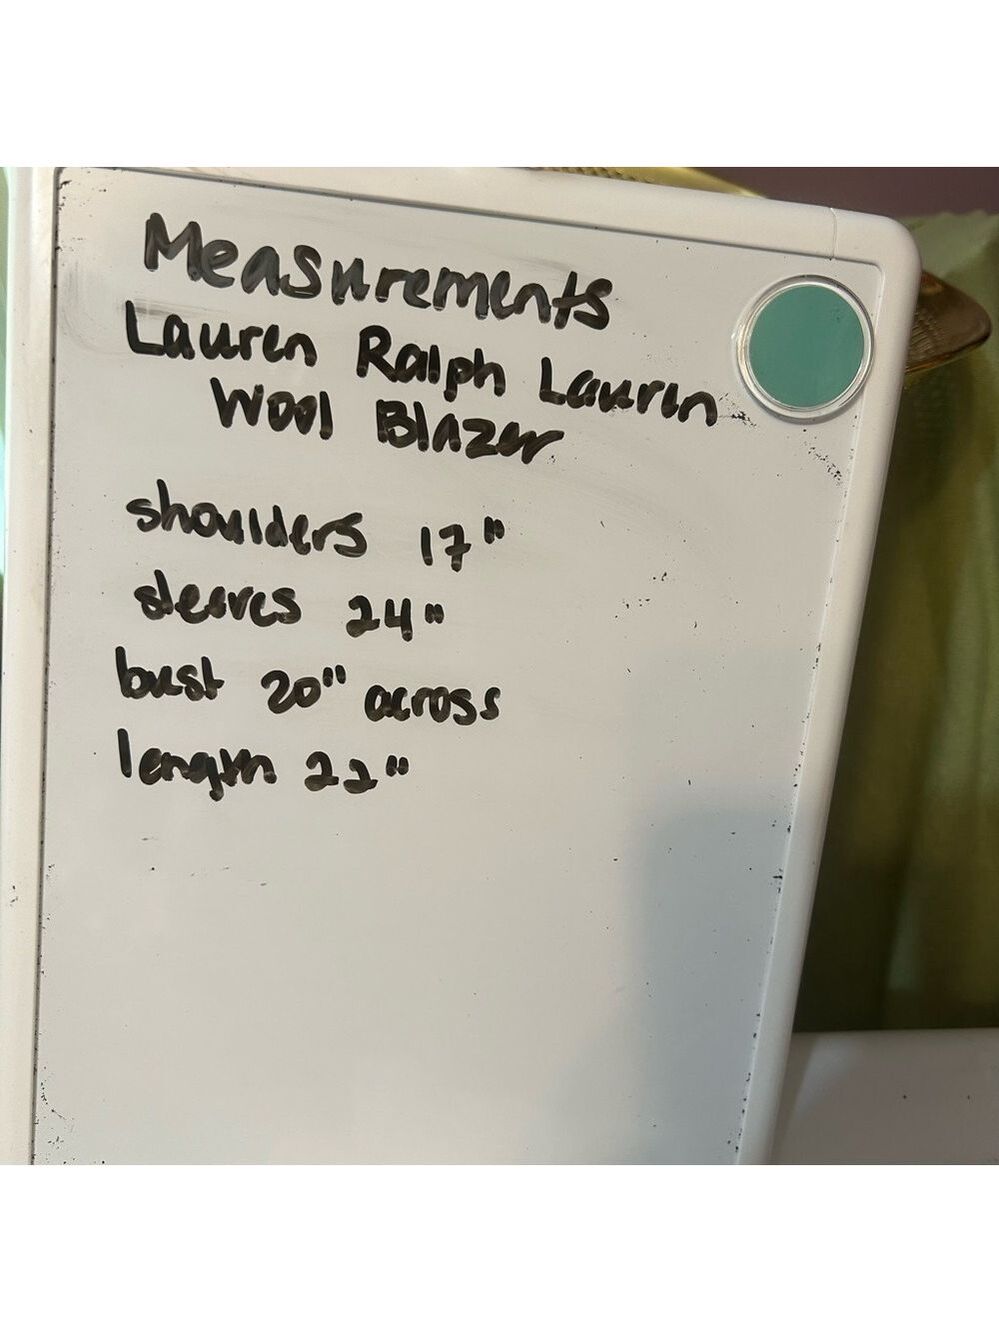 Measurements
Lauren Ralph Lauren
Wool Blazer
shoulders 17"
sleeves 24"
bust 20" across
length 22"